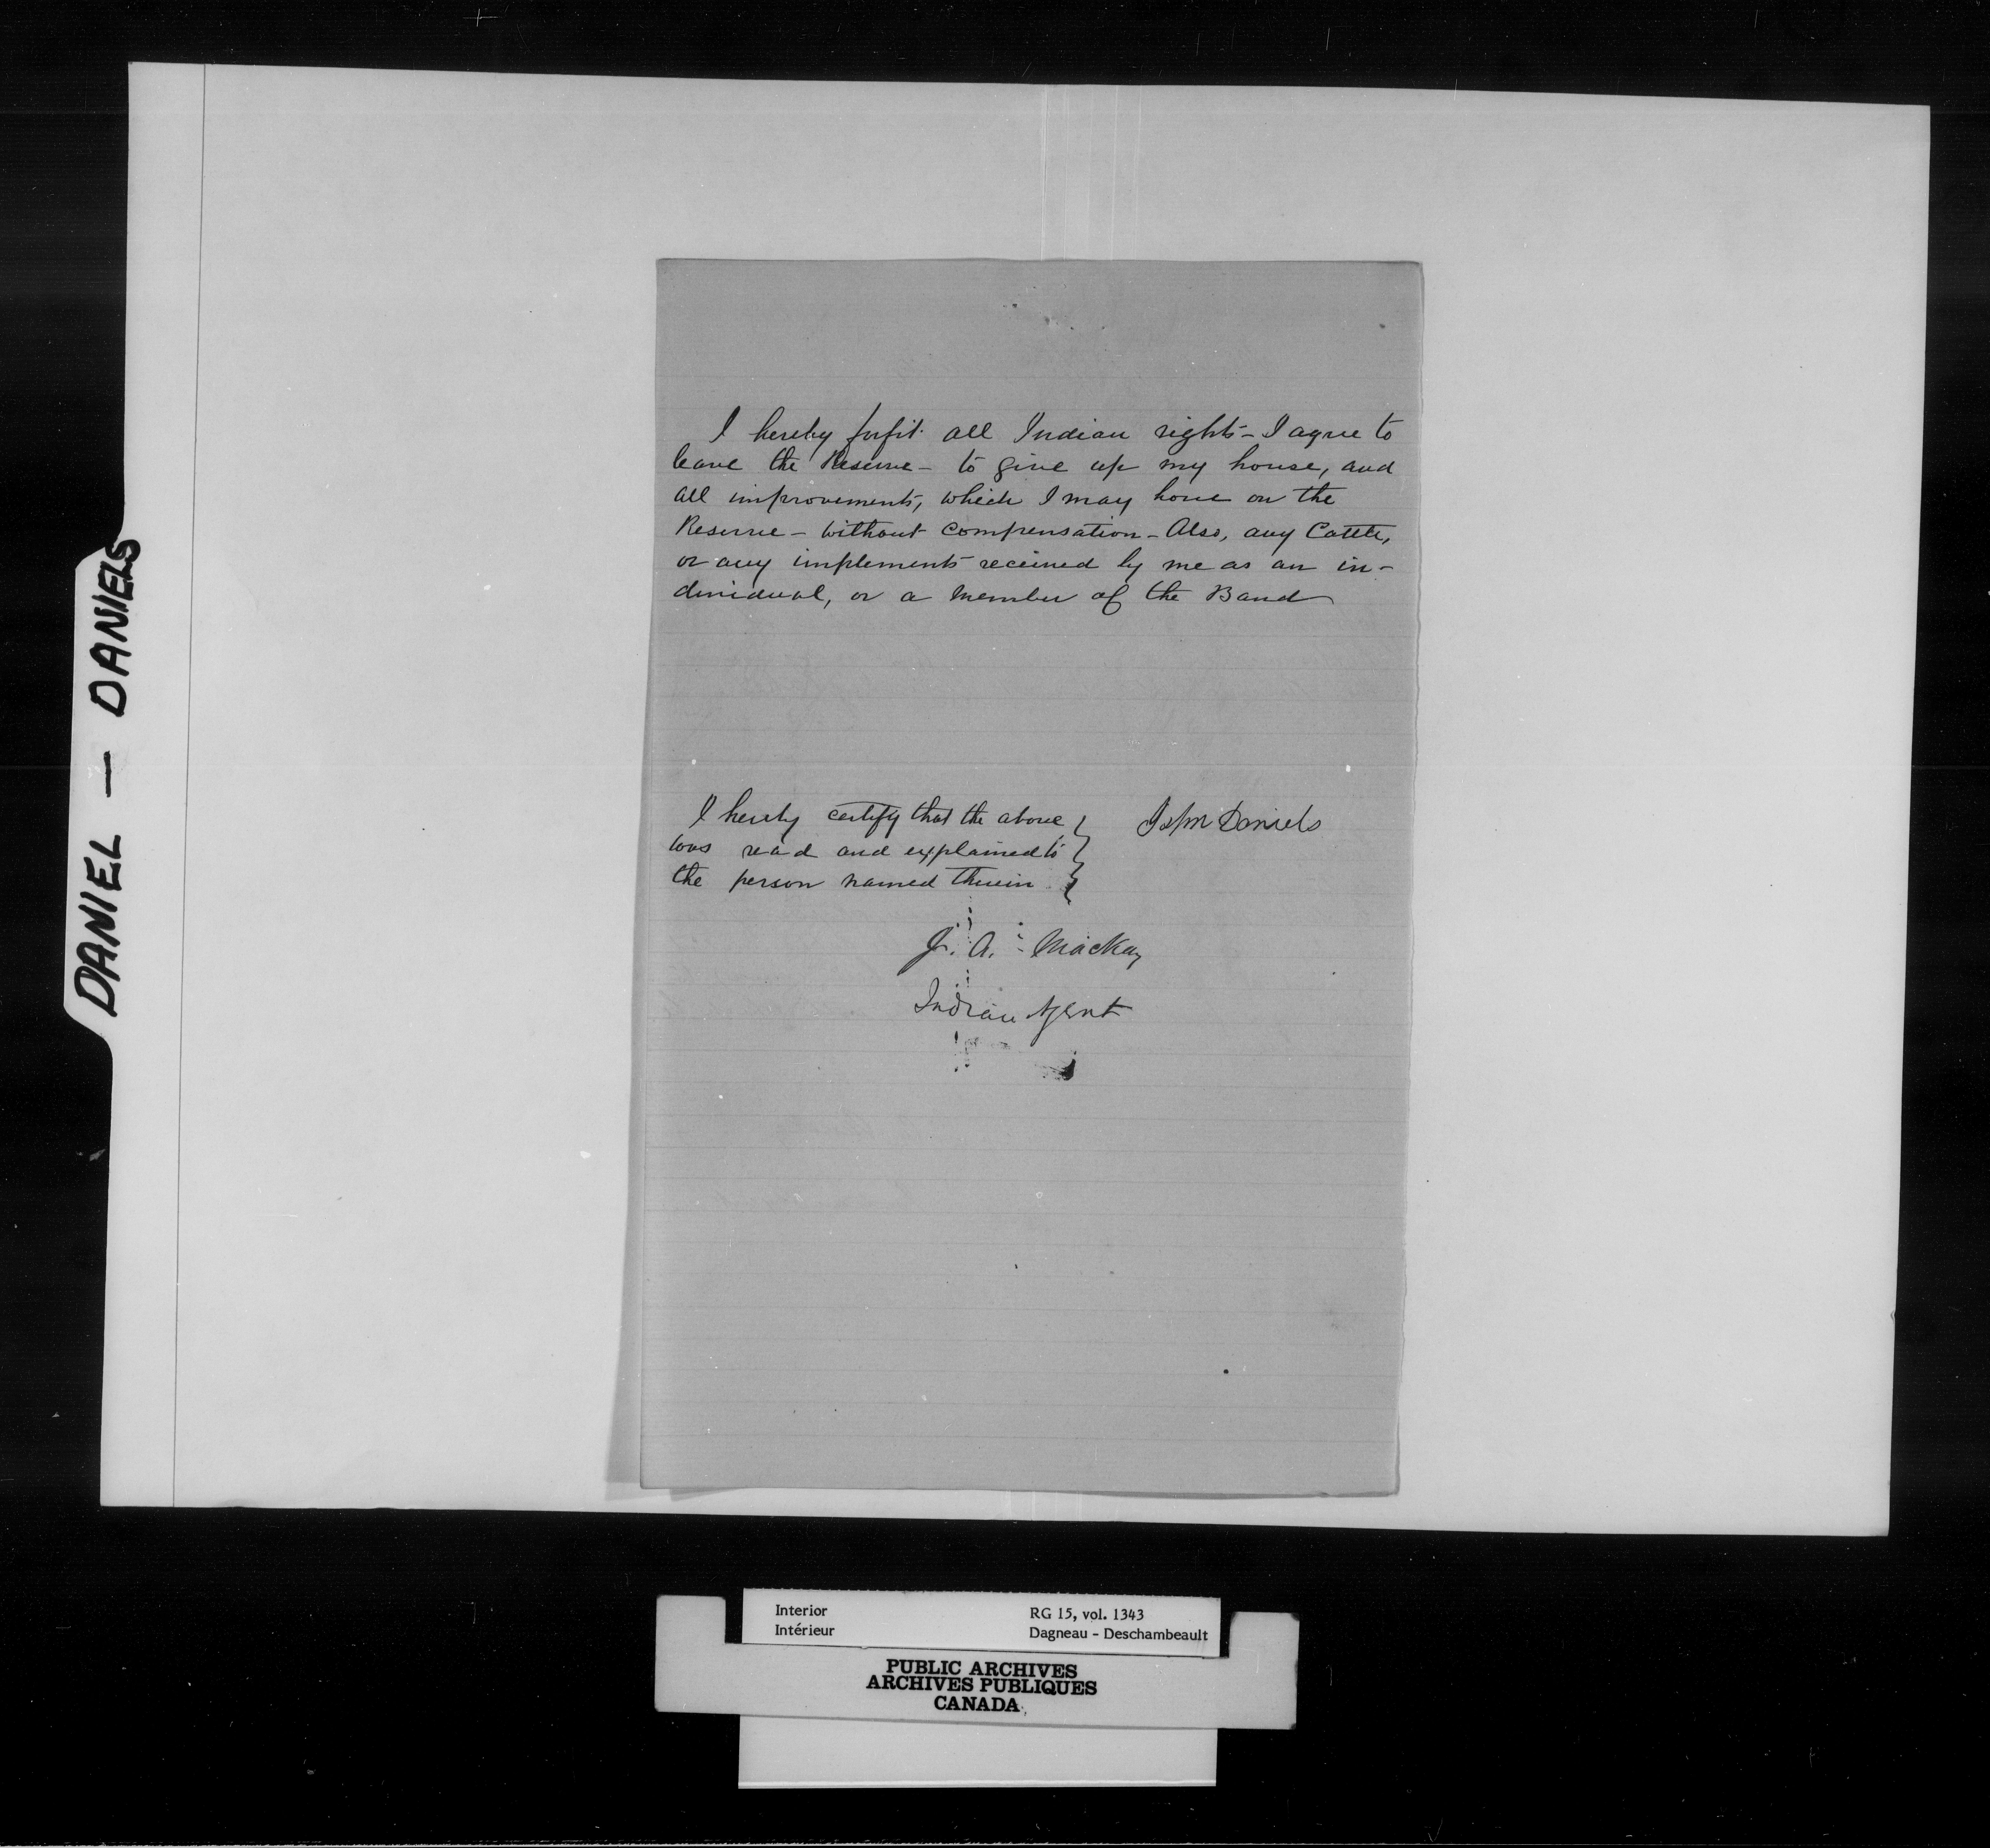 DANIEL — DANIELS
I hereby forfit all Indian rights - I agree to
leave the Reserve - to give up my house, and
all improvements, which I may have on the
Reserve - without compensation - Also, any Cattle,
or any implements received by me as an in-
dividual, or a member of the Band
I hereby certify that the above
was read and explained to
the person named therein
John Daniels
J. A. Mackay
Indian Agent
Interior
Intérieur
RG 15, vol. 1343
Dagneau - Deschambeault
PUBLIC ARCHIVES
ARCHIVES PUBLIQUES
CANADA